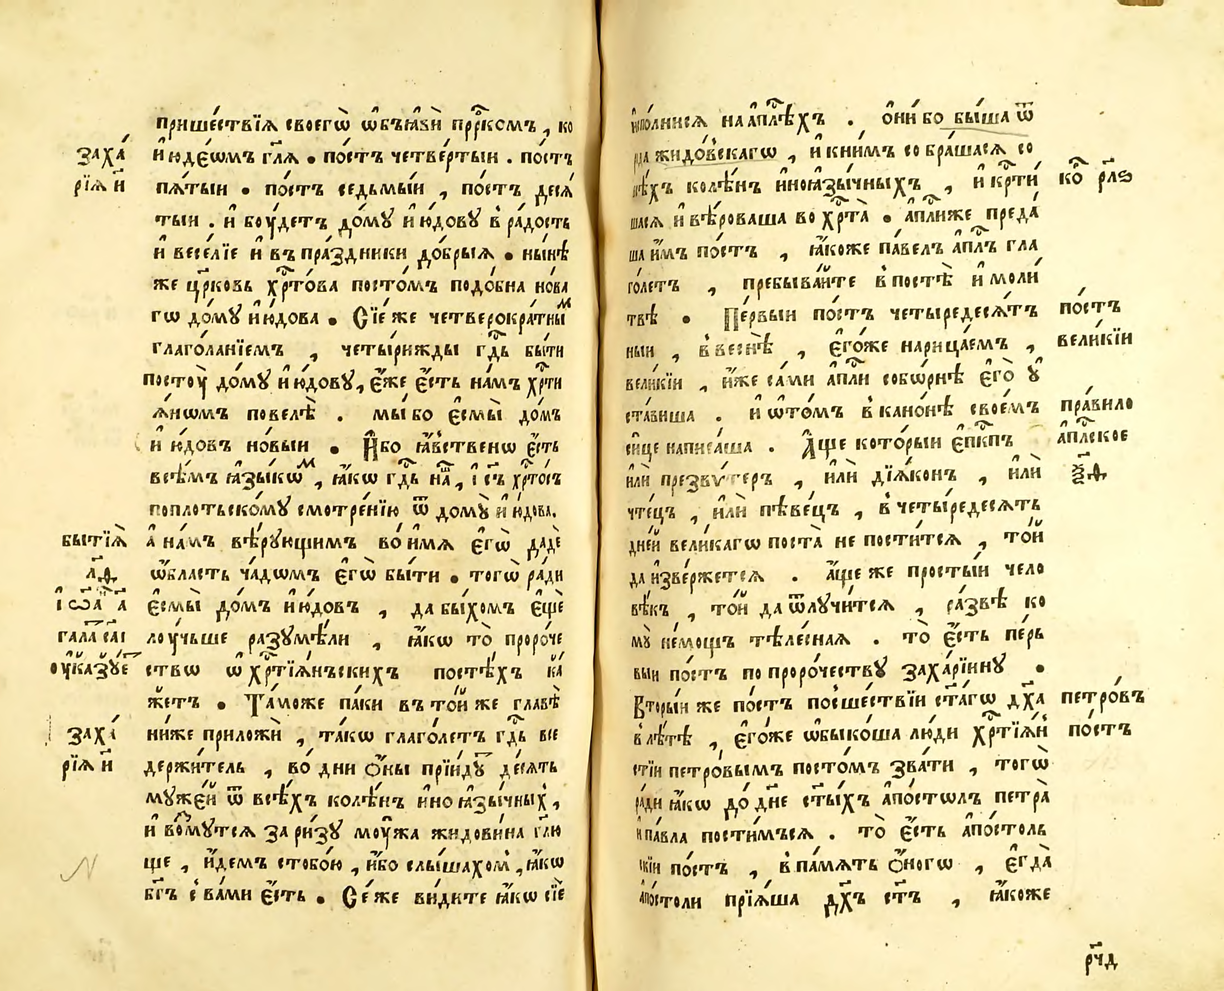 пришествїѧ своегѡ̀ ѡ҆б̾ѧвѝ прⷪ҇ркомъ , ко
заха́
рїѧ и҃
и҆юде́ѡмъ гл҃ѧ . по́стъ четве́ртыи . по́стъ
пѧ́тыи . по́стъ седьмы́и , по́стъ десѧ́
тыи . и҆ бꙋ́детъ до́мꙋ и҆ю́довꙋ в ра́дость
и҆ весе́лїе и҆ в пра́здники до́брыѧ . ны́нѣ
же цр҃ковь хрⷭ҇то́ва посто́мъ подо́бна но́ва
гѡ до́мꙋ и҆ю́дова . Сїе́ же четверокра́тныⷨ
глаго́ланїемъ , четы́рижды гдⷭ҇ь бы́ти
посто́ꙋ до́мꙋ и҆ю́довꙋ , є҆́же є҆́сть на́мъ хрⷭ҇ти
ѧ́нѡмъ повелѣ̀ . мы́ бо є҆смы̀ до́мъ
и҆ю́довъ но́выи . И҆́бо ꙗ҆́вственѡ є҆́сть
всѣ́мъ ꙗ҆зы́кѡⷨ , ꙗ҆́кѡ гдⷭ҇ь на́шъ , і҆с҃ъ хрⷭ҇то́съ
попло́тьскомꙋ смотре́нїю ѿ до́мꙋ и҆ю́дова .
бытїѧ̀
л҃ѳ
і҆ѡ́а а҃
гала́ заⷱ҇
оу҆каꙁꙋе
а҆ на́мъ вѣ́рꙋющимъ во и҆́мѧ є҆гѡ̀ дадѐ
ѡ҆́бласть ча́дѡмъ є҆гѡ̀ бы́ти . тогѡ̀ ра́ди
є҆смы̀ до́мъ и҆ю́довъ , да бы́хомъ є҆щѐ
лоу́чьше разꙋмѣ́ли , ꙗ҆́кѡ то̀ проро́че
ствѡ ѡ҆ хрⷭ҇тїѧ́ньскихъ посте́хъ ка́
жетъ . Та́може па́ки в то́и же главѣ̀
заха́
рїѧ и҃
ни́же приложѝ , та́кѡ глаго́летъ гдⷭ҇ь все
держи́тель , во днѝ о҆́ны прїи́дꙋⷮ де́сѧть
мꙋже́й ѿ всѣ́хъ колѣ́нъ и҆ноꙗзы́чныхъ ,
и҆ во́змꙋтсѧ за ри́зꙋ моу́жа жидови́на гл҃ю
ще , и҆́демъ с тобо́ю , и҆́бо слы́шахомъ , ꙗ҆́кѡ
бг҃ъ с ва́ми є҆́сть . Се́ же ви́дите ꙗ҆́кѡ сїѐ
и҆спо́лнисѧ на а҆пⷭ҇лѣхъ . ѻ҆ни́ бо бы́ша ѿ
ро́да жидо́вскагѡ , и҆ к ни́мъ собра́шасѧ со
всѣ́хъ колѣ́нъ и҆ноꙗзы́чныхъ , и҆ крⷭ҇ти́
ко́ⷬ рл҃ѕ
шасѧ и҆ вѣ́роваша во хрⷭ҇та̀ . а҆пⷭ҇ли же преда́
ша и҆́мъ по́стъ , ꙗ҆́коже па́велъ а҆пⷭ҇лъ гла
го́летъ , пребыва́йте в постѣ̀ и҆ моли́
твѣ . Пе́рвыи по́стъ четыредесѧ́тъ
по́стъ
вели́кїи
ныи , в веснѣ̀ , є҆го́же нарица́емъ ,
вели́кїи , и҆́же са́ми а҆пⷭ҇ли собѡ́рнѣ є҆го̀ ꙋ
ста́виша . и҆ ѡ҆ то́мъ в кано́нѣ свое́мъ
пра́вило
а҆пⷭ҇льское
ѯ҃ѳ
си́це написа́ша . А҆́ще кото́рыи є҆пⷭ҇кпъ
и҆лѝ презвѵ́теръ , и҆лѝ дїѧ́конъ , и҆лѝ
чте́цъ , и҆лѝ пѣве́цъ , в четыредесѧ́ть
дне́й вели́кагѡ поста̀ не пости́тсѧ , то́й
да и҆зве́ржетсѧ . а҆́ще же просты́и чело
вѣ́къ , то́й да ѿлꙋчи́тсѧ , ра́звѣ ко
мꙋ̀ не́мощь тѣле́снаѧ . то̀ є҆́сть пе́рь
выи по́стъ по проро́чествꙋ заха́рїинꙋ .
Вторы́и же по́стъ по сше́ствїи ст҃а́гѡ дх҃а
петро́въ
по́стъ
в лѣ́тѣ , є҆го́же ѡ҆быко́ша лю́ди хрⷭ҇тїѧ́н
стїи петро́вымъ посто́мъ зва́ти , тогѡ̀
ра́ди ꙗ҆́кѡ до днѐ ст҃ы́хъ а҆по́столъ петра̀
и҆ па́вла пости́мъсѧ . то̀ є҆́сть а҆по́столь
скїи по́стъ , в па́мѧть ѻ҆́ногѡ , є҆гда̀
а҆по́столи прїѧ́ша дх҃ъ ст҃ъ , ꙗ҆́коже
рч҃д